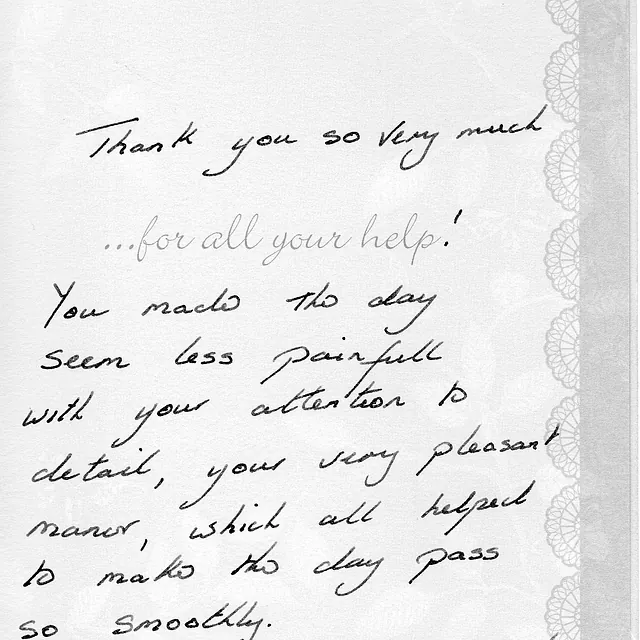 Thank you so very much
...for all your help!
You made the day
seem less painfull
with your attention to
detail, your very pleasant
manor, which all helped
to make the day pass
so smoothly.